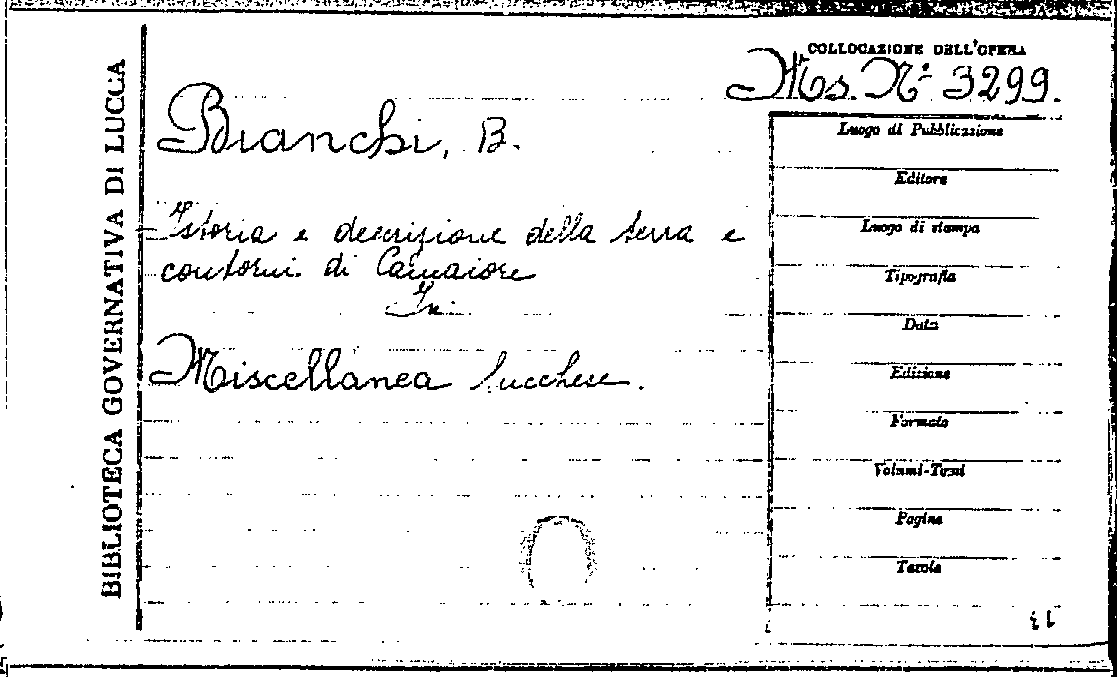 BIBLIOTECA GOVERNATIVA DI LUCCA
COLLOCAZIONE DELL'OPERA
Ms. N° 3299.
Bianchi, B.
Istoria e descrizione della terra e
contorni di Camaiore
In
Miscellanea lucchese.
Luogo di Pubblicazione
Editore
Luogo di stampa
Tipografia
Data
Edizione
Formato
Volumi-Tomi
Pagine
Tavole